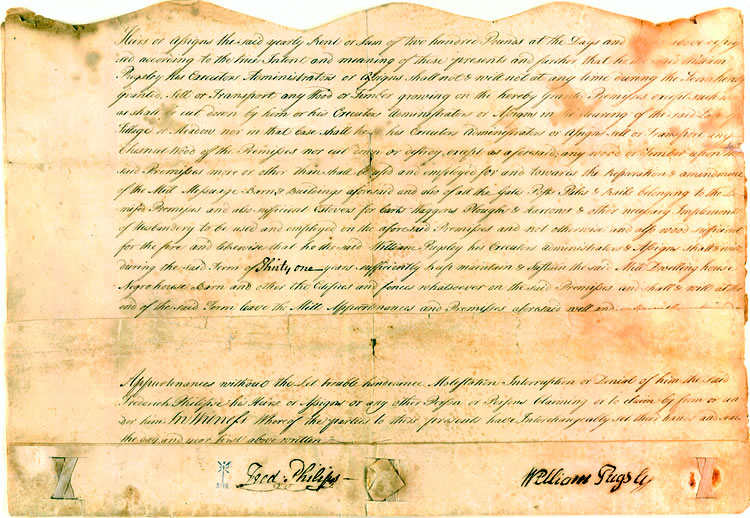 Heirs or Assigns the said yearly Rent or Sum of Two hundred Pounds at the Days and above expres
sed according to the true Intent and meaning of these presents and further that he the said William
Pugsley his Executors Administrators or Assigns shall not & will not at any time during the Term hereby
granted, Sell or Transport any Wood or Timber growing on the hereby Granted Premisses except such
as shall be cut down by him or his Executors Administrators or Assigns in the clearing of the said Land
Tillage or Meadow nor in that case shall he his Executors Administrators or Assigns sell or Transport any
Chesnut Wood of the Premisses nor cut down or destroy, except as aforesaid, any wood or Timber upon the
said Premisses more or other than shall be used and employed for and towards the Reparation & amendment
of the Mill Messuage Barns & Buildings aforesaid and also of all the Gates Posts Pales & Rails belonging to the
mised Premises and also sufficient Estovers for Carts Waggons Ploughs & Harrows & other necessary Implements
of Husbandry to be used and employed on the aforesaid Premisses and not otherwise and also wood sufficient
for the fire and likewise that he the said William Pugsley his Executors Administrators & Assigns shall & will
during the said Term of Thirty one years sufficiently keep maintain & Sustain the said Mill Dwelling house
Negro house Barn and other the Edifices and fences whatsoever on the said Premisses and shall & will at the
end of the said Term leave the Mill Appurtenances and Premisses aforesaid well and
Appurtenances without the Let trouble hinderance Molestation Interruption or Denial of him the said
Frederick Philipse his Heirs or Assigns or any other Person or Persons Claiming or to claim by from or un
der him In Witness Whereof the parties to these presents have Interchangeably set their hands and seals
the day and year first above written
Fred: Philips
William Pugsly